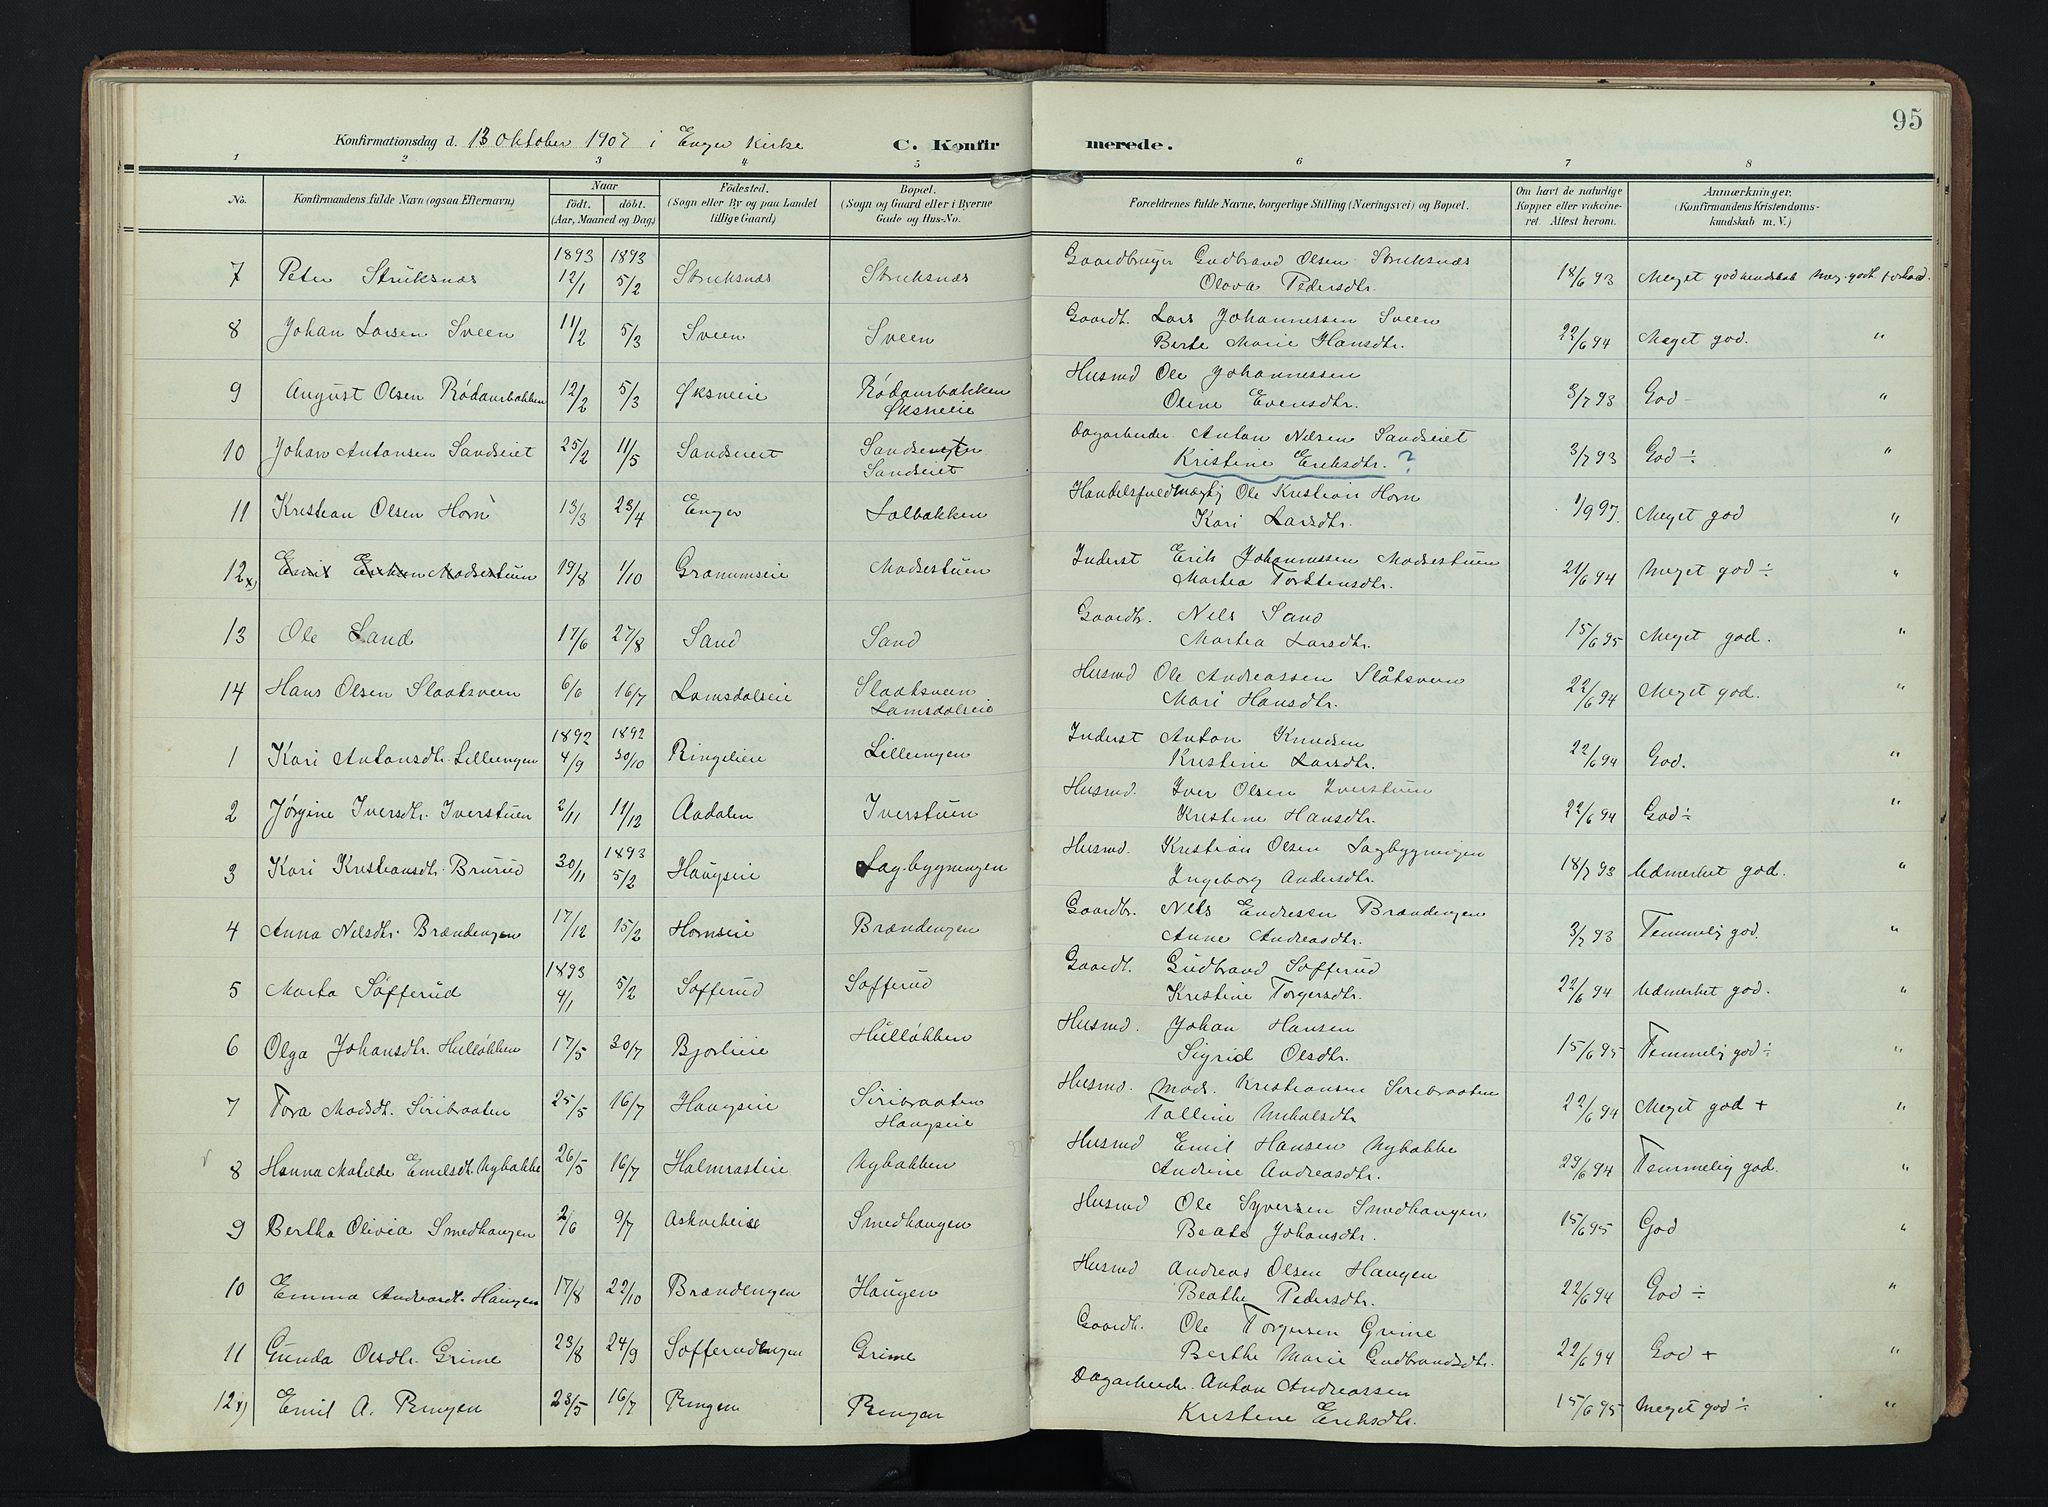 95
Konfirmationsdag d. 13 Oktober 1907 i Enger Kirke C. Konfirmerede.
1 2 3 4 5 6 7 8
No. Konfirmandens fulde Navn (ogsaa Efternavn) Naar født. døbt. (Aar, Maaned og Dag) Fødested. (Sogn eller By og paa Landet tillige Gaard) Bopæl. (Sogn og Gaard eller i Byerne Gade og Hus-No. Forældrenes fulde Navne, borgerlige Stilling (Næringsvei) og Bopæl. Om havt de naturlige Kopper eller vakcineret. Attest herom. Anmærkninger. (Konfirmandens Kristendomskundskab m. V.)
1893 1893
7 Peter Struksnæs 12/1 5/2 Struksnæs Struksnæs Gaardbruger Gudbrand Olsen Struksnæs 18/6 93 Meget god kundskab Meg. godt forhold.
Olava Pedersdtr.
8 Johan Larsen Sveen 11/2 5/3 Sveen Sveen Gaardb. Lars Johannessen Sveen 22/6 94 Meget god. "
Berte Marie Hansdtr.
9 August Olsen Rødaurbakken 12/2 5/3 Øksneie Rødaurbakken Husmd Ole Johannessen 3/7 93 God "
Øksneie Oline Evensdtr.
10 Johan Antonsen Sandseiet 25/2 11/5 Sandseiet Dagarbeider Anton Nilsen Sandseiet 3/7 93 God ÷ "
Sandseiet Kristine Eriksdtr. ?
11 Kristian Olsen Horn 13/3 23/4 Enger Lolbakken Handelsfuldmægtig Ole Kristian Horn 1/9 97. Meget god "
Kari Larsdtr.
12 x) Emil Eriksen Madsestuen 19/8 1/10 Granumseie Madsestuen Inderst Erik Johannessen Madsestuen 21/6 94 Meget god ÷ "
Martea Torstensdtr.
13 Ole Sand 17/6 27/8 Sand Sand Gaardb. Nels Sand 15/6 95 Meget god. "
Martea Larsdtr.
14 Hans Olsen Slaatsveen 6/6 16/7 Lamsdalseie Slaatsveen Husmd Ole Andreassen Slåtsveen 22/6 94 Meget god. "
Lamsdalseie Mari Hansdtr.
1892 1892
1 Kari Antonsdtr. Lillengen 4/9 30/10 Ringelieie Lillengen Inderst Anton Knudsen 22/6 94 God. "
Kristine Larsdtr.
2 Jørgine Iversdtr. Iverstuen 2/11 11/12 Aadalen Iverstuen Husmd. Iver Olsen Iverstuen 22/6 94 God ÷ "
Kristine Hansdtr.
1893
3 Kari Kristiansdtr. Brurud 30/11 5/2 Haugseie Sagbygningen Husmd. Kristian Olsen Sagbygningen 18/7 93 Udmerket god. "
Ingeborg Andersdtr.
4 Anna Nilsdtr. Brændengen 17/12 15/2 Hornseie Brændengen Gaardbr. Nels Endresen Brændengen 3/7 93 Temmelig god. "
Anne Andreasdtr.
1893
5 Marta Søfferud 4/1 5/2 Søfferud Søfferud Gaardb. Gudbrand Søfferud 22/6 94 Udmerket god. "
Kristine Torgersdtr.
6 Olga Johansdtr. Hulløkken 17/5 30/7 Bjorlieie Hulløkken Husmd. Johan Hansen 15/6 95 Temmelig god ÷ "
Sigrid Olsdtr.
7 Tora Madsdt. Siribraaten 25/5 16/7 Haugseie Siribraaten Husmd. Mads Kristiansen Siribraaten 22/6 94 Meget god + "
Haugseie Talline
8 Hanna Matilde Emilsdt. Nybakke 26/5 16/7 Halmrasteie Nybakken Husmd Emil Hansen Nybakke 29/6 94 Temmelig god. "
Andrine Andreasdtr.
9 Bertha Olivia Smedhaugen 2/6 9/7 Smedhaugen Husmd Ole Syversen Smedhaugen 15/6 95 God "
Beate Johansdtr.
10 Emma Andreasdt. Haugen 17/8 22/10 Brændengen Haugen Husmd Andreas Olsen Haugen 22/6 94 God ÷ "
Beathe Pedersdtr.
11 Gunda Olsdtr. Grime 23/8 24/9 Søfferudengen Grime Gaardb. Ole Torgersen Grime 22/6 94 God + "
Berthe Marie Gudbrandsdtr.
12 x) Emil A. Ringen 23/5 16/7 Ringen Ringen Dagarbeidr. Anton Andreassen 15/6 95 Meget god ÷ "
Kristine Eriksdtr.